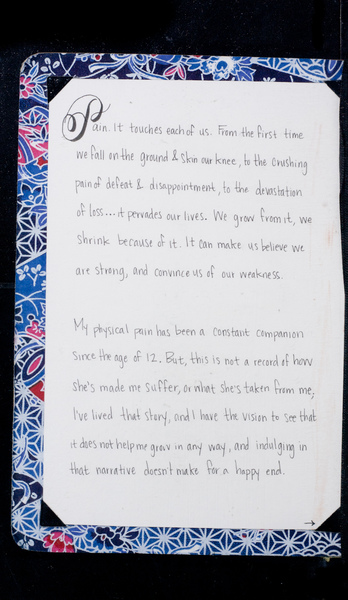 Pain. It touches each of us. From the first time
we fall on the ground & skin our knee, to the crushing
pain of defeat & disappointment, to the devastation
of loss... it pervades our lives. We grow from it, we
shrink because of it. It can make us believe we
are strong, and convince us of our weakness.
My physical pain has been a constant companion
since the age of 12. But, this is not a record of how
she's made me suffer, or what she's taken from me;
I've lived that story, and I have the vision to see that
it does not help me grow in any way, and indulging in
that narrative doesn't make for a happy end.
→